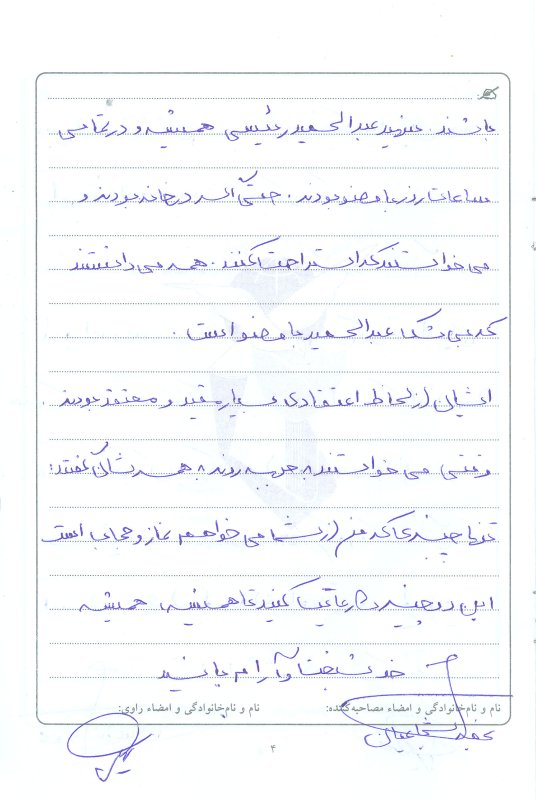 باشند. شهید عبدالحمید رئیسی همیشه و در تمامی
ساعات روز با وضو بودند. حتی اگر در خانه بودند و
می خواستند که استراحت کنند. همه می دانستند
که بی شک عبدالحمید با وضو است.
ایشان از لحاظ اعتقادی بسیار مقید و معتقد بودند.
وقتی می خواستند به جبهه بروند به همسرشان گفتند:
تنها چیزی که من از شما می خواهم نماز و حجاب است
این دو چیز را رعایت کنید تا همیشه، همیشه
خوشبخت و آرام باشید
نام و نام‌خانوادگی و امضاء مصاحبه‌کننده:
نام و نام‌خانوادگی و امضاء راوی:
۴